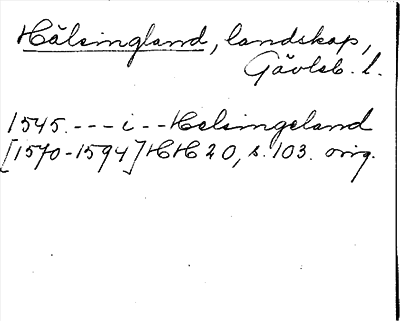 Hälsingland, landskap,
Gävleb. l.
1545. --- i -- Helsingeland
[1570-1594] HH 20, s. 103. orig.